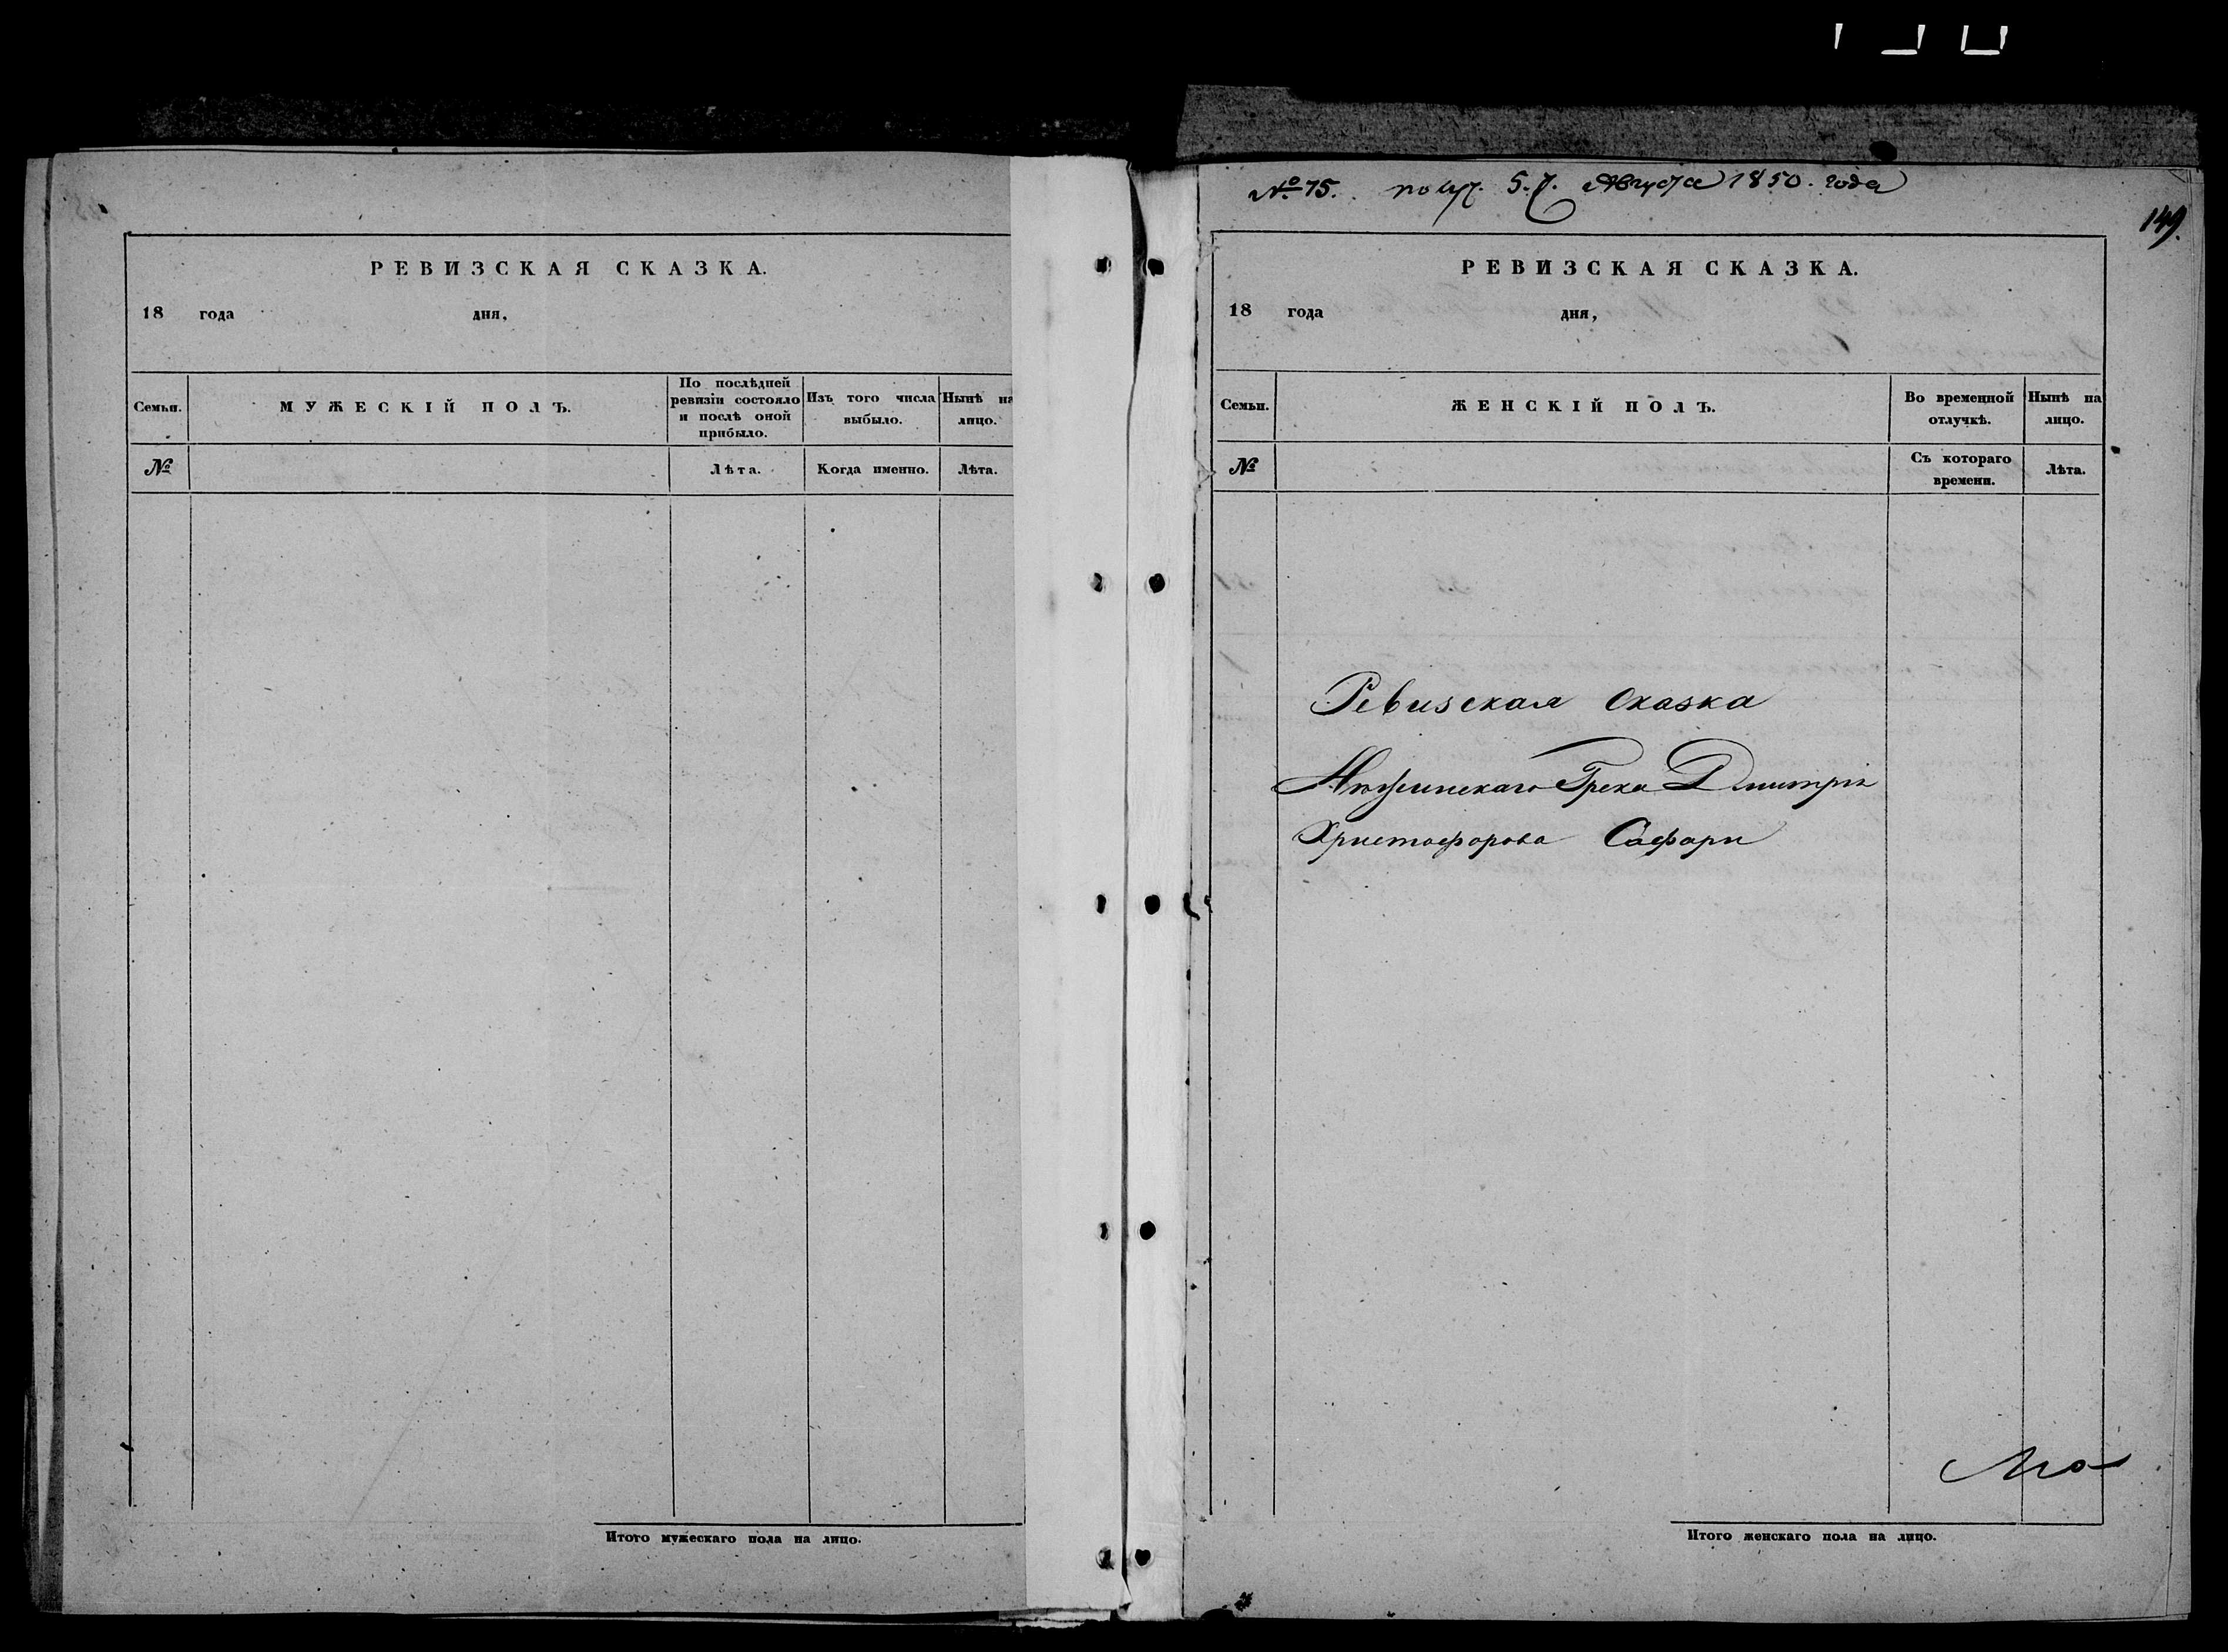 РЕВИЗСКАЯ СКАЗКА.
18 года дня,
Семьи.
МУЖЕСКІЙ ПОЛЪ.
По послѣдней ревизіи состояло и послѣ оной прибыло.
Изъ того числа выбыло.
Нынѣ на лицо.
№
Лѣта.
Когда именно.
Лѣта.
Итого мужескаго пола на лицо.
№ 75. получ. 5. Августа 1850. года
149.
РЕВИЗСКАЯ СКАЗКА.
18 года дня,
Семьи.
ЖЕНСКІЙ ПОЛЪ.
Во временной отлучкѣ.
Нынѣ на лицо.
№
Съ котораго времени.
Лѣта.
Ревизская Сказка
Нѣжинскаго Грека Дмитрія
Христофорова Сафари
Итого женскаго пола на лицо.